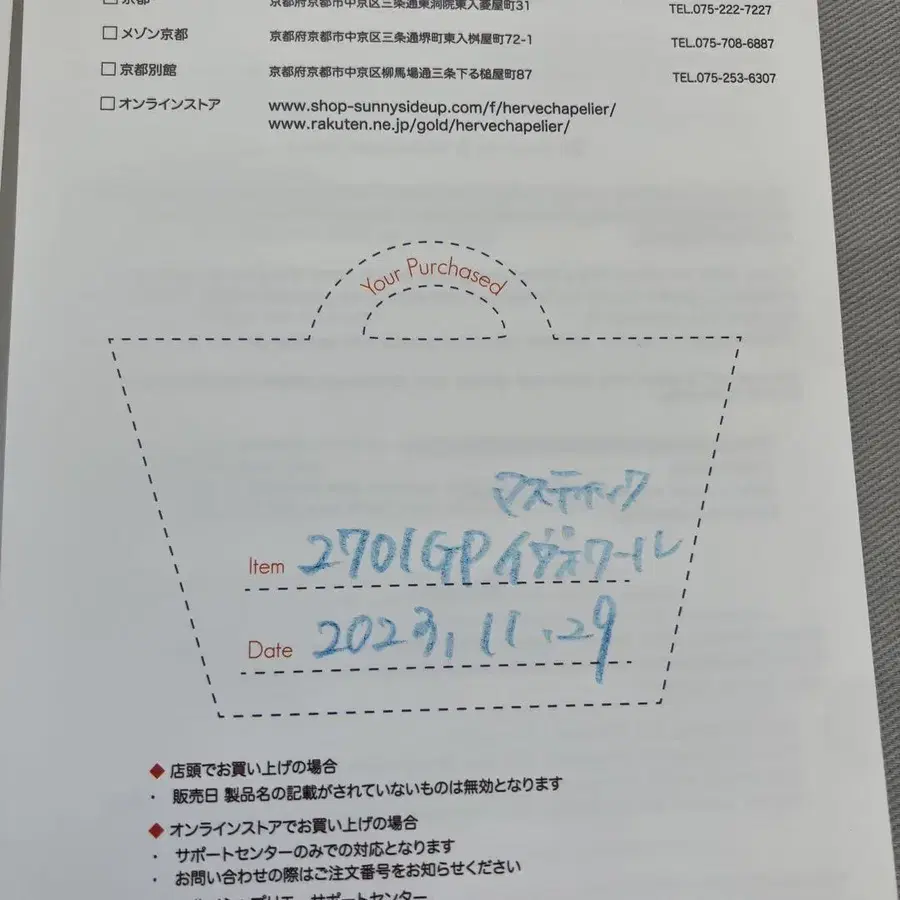 京都 京都府京都市中京区三条通東洞院東入菱屋町31 TEL.075-222-7227
メゾン京都 京都府京都市中京区三条通堺町東入桝屋町72-1 TEL.075-708-6887
京都別館 京都府京都市中京区柳馬場通三条下る槌屋町87 TEL.075-253-6307
オンラインストア www.shop-sunnysideup.com/f/hervechapelier/
www.rakuten.ne.jp/gold/hervechapelier/
Your Purchased
マスティック
Item 2701GP イヴォワール
Date 2023.11.29
◆ 店頭でお買い上げの場合
・ 販売日 製品名の記載がされていないものは無効となります
◆ オンラインストアでお買い上げの場合
・ サポートセンターのみでの対応となります
・ お問い合わせの際はご注文番号をお知らせください
サポートセンター